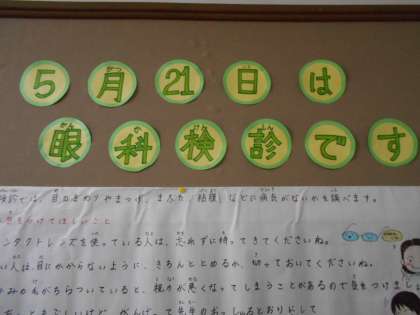 5月21日は
眼科検診です
検診では、目のまわりやまつげ、まぶた、結膜などに病気がないかを調べます。
気をつけてほしいこと
ンタクトレンズを使っている人は、忘れずに持ってきてくださいね。
い人は、目にかからないように、きちんととめるか、切っておいてくださいね。
かみの毛がちらついていると、視力が悪くなってしまうことがあるので気をつけましょ
先生のおっしゃるとおりにして